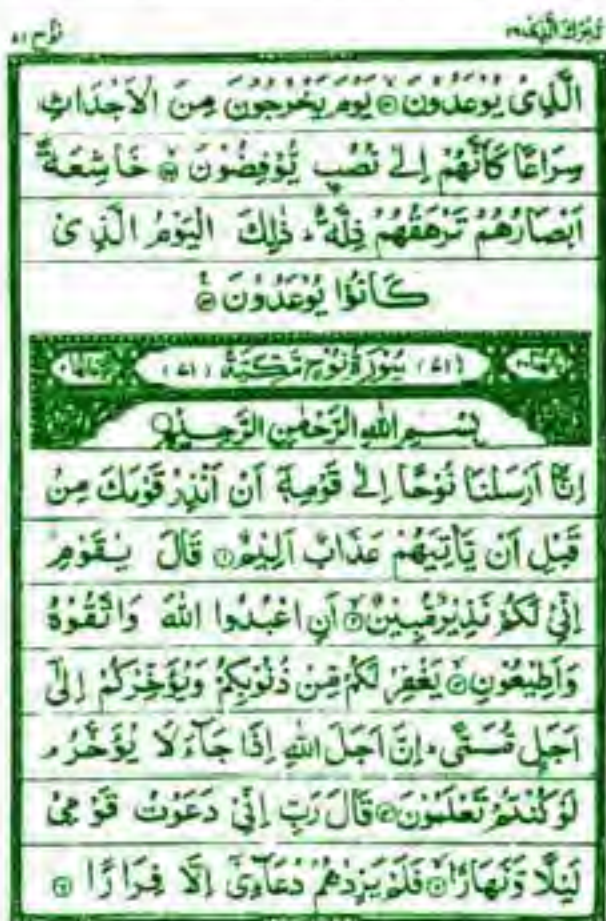 تبٰرك الذى ٢٩ نوح ٧١
الَّذِىۡ يُوۡعَدُوۡنَ ۞ يَوۡمَ يَخۡرُجُوۡنَ مِنَ الۡاَجۡدَاثِ
سِرَاعًا كَاَنَّهُمۡ اِلٰى نُصُبٍ يُّوۡفِضُوۡنَ ۞ خَاشِعَةً
اَبۡصَارُهُمۡ تَرۡهَقُهُمۡ ذِلَّةٌ ؕ ذٰلِكَ الۡيَوۡمُ الَّذِىۡ
كَانُوۡا يُوۡعَدُوۡنَ ۞
(٧١) سُوۡرَةُ نُوۡحٍ مَّكِّيَّةٌ (٧١)
بِسۡمِ اللّٰهِ الرَّحۡمٰنِ الرَّحِيۡمِ
اِنَّاۤ اَرۡسَلۡنَا نُوۡحًا اِلٰى قَوۡمِهٖۤ اَنۡ اَنۡذِرۡ قَوۡمَكَ مِنۡ
قَبۡلِ اَنۡ يَّاۡتِيَهُمۡ عَذَابٌ اَلِيۡمٌ ۞ قَالَ يٰقَوۡمِ
اِنِّىۡ لَكُمۡ نَذِيۡرٌ مُّبِيۡنٌ ۞ اَنِ اعۡبُدُوا اللّٰهَ وَاتَّقُوۡهُ
وَاَطِيۡعُوۡنِ ۞ يَغۡفِرۡ لَكُمۡ مِّنۡ ذُنُوۡبِكُمۡ وَيُؤَخِّرۡكُمۡ اِلٰٓى
اَجَلٍ مُّسَمًّى ؕ اِنَّ اَجَلَ اللّٰهِ اِذَا جَآءَ لَا يُؤَخَّرُ ۘ
لَوۡ كُنۡتُمۡ تَعۡلَمُوۡنَ ۞ قَالَ رَبِّ اِنِّىۡ دَعَوۡتُ قَوۡمِىۡ
لَيۡلًا وَّنَهَارًا ۞ فَلَمۡ يَزِدۡهُمۡ دُعَآءِىۡۤ اِلَّا فِرَارًا ۞